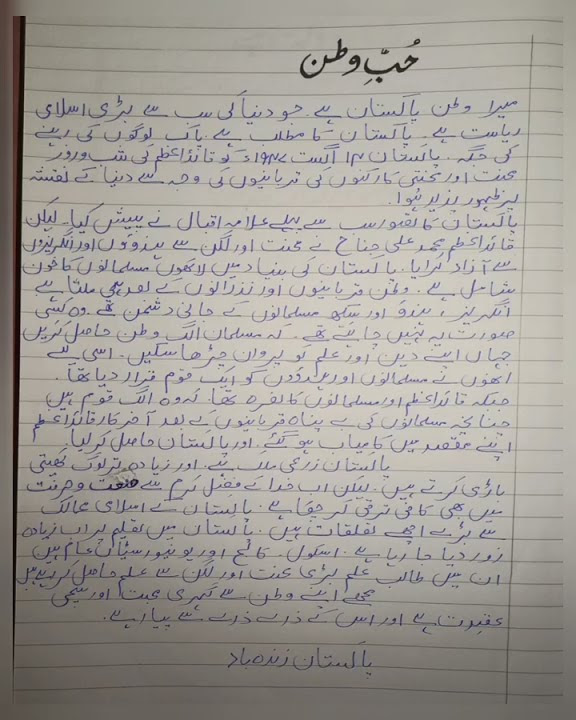 حُبِّ وطن
میرا وطن پاکستان ہے۔ جو دنیا کی سب سے بڑی اسلامی
ریاست ہے۔ پاکستان کا مطلب ہے پاک لوگوں کی رہنے
کی جگہ۔ پاکستان ۱۴ اگست ۱۹۴۷ء کو قائداعظم کی شب وروز
محنت اور محنتی کارکنوں کی قربانیوں کی وجہ سے دنیا کے نقشہ
پر ظہور پزیر ہُوا۔
پاکستان کا تصور سب سے پہلے علامہ اقبال نے پیش کیا۔ لیکن
قائداعظم محمد علی جناح نے محنت اور لگن سے ہندوؤں اور انگریزوں
سے آزاد کرایا۔ پاکستان کی بنیاد میں لاکھوں مسلمانوں کا خون
شامل ہے۔ وطن قربانیوں اور نذرانوں کے بعد ہی ملتا ہے
انگریز، ہندو اور سکھ مسلمانوں کے جانی دشمن تھے۔ وہ کسی
صورت یہ نہیں چاہتے تھے۔ کہ مسلمان الگ وطن حاصل کریں
جہاں اپنے دین اور علم کو پروان چڑھا سکیں۔ اسی لئے
انھوں نے مسلمانوں اور ہندوؤں کو ایک قوم قرار دیا تھا۔
جبکہ قائداعظم اور مسلمانوں کا نعرہ تھا۔ کہ وہ الگ قوم ہیں
چنانچہ مسلمانوں کی بے پناہ قربانیوں کے بعد آخر کار قائداعظم
اپنے مقصد میں کامیاب ہو گئے۔ اور پاکستان حاصل کر لیا۔
پاکستان زرعی ملک ہے۔ اور زیادہ تر لوگ کھیتی
باڑی کرتے ہیں۔ لیکن اب خدا کے فضل کرم سے صنعت و حرفت
میں بھی کافی ترقی کر چکا ہے۔ پاکستان کے اسلامی ممالک
سے بڑے اچھے تعلقات ہیں۔ پاکستان میں تعلیم پر اب زیادہ
زور دیا جا رہا ہے۔ اسکول۔ کالج اور یونیورسٹیاں عام ہیں
ان میں طالب علم بڑی محنت اور لگن سے علم حاصل کر رہے ہیں
مجھے اپنے وطن سے گہری محبت اور سچی
عقیدت ہے اور اس کے ذرے ذرے سے پیار ہے۔
پاکستان زندہ باد